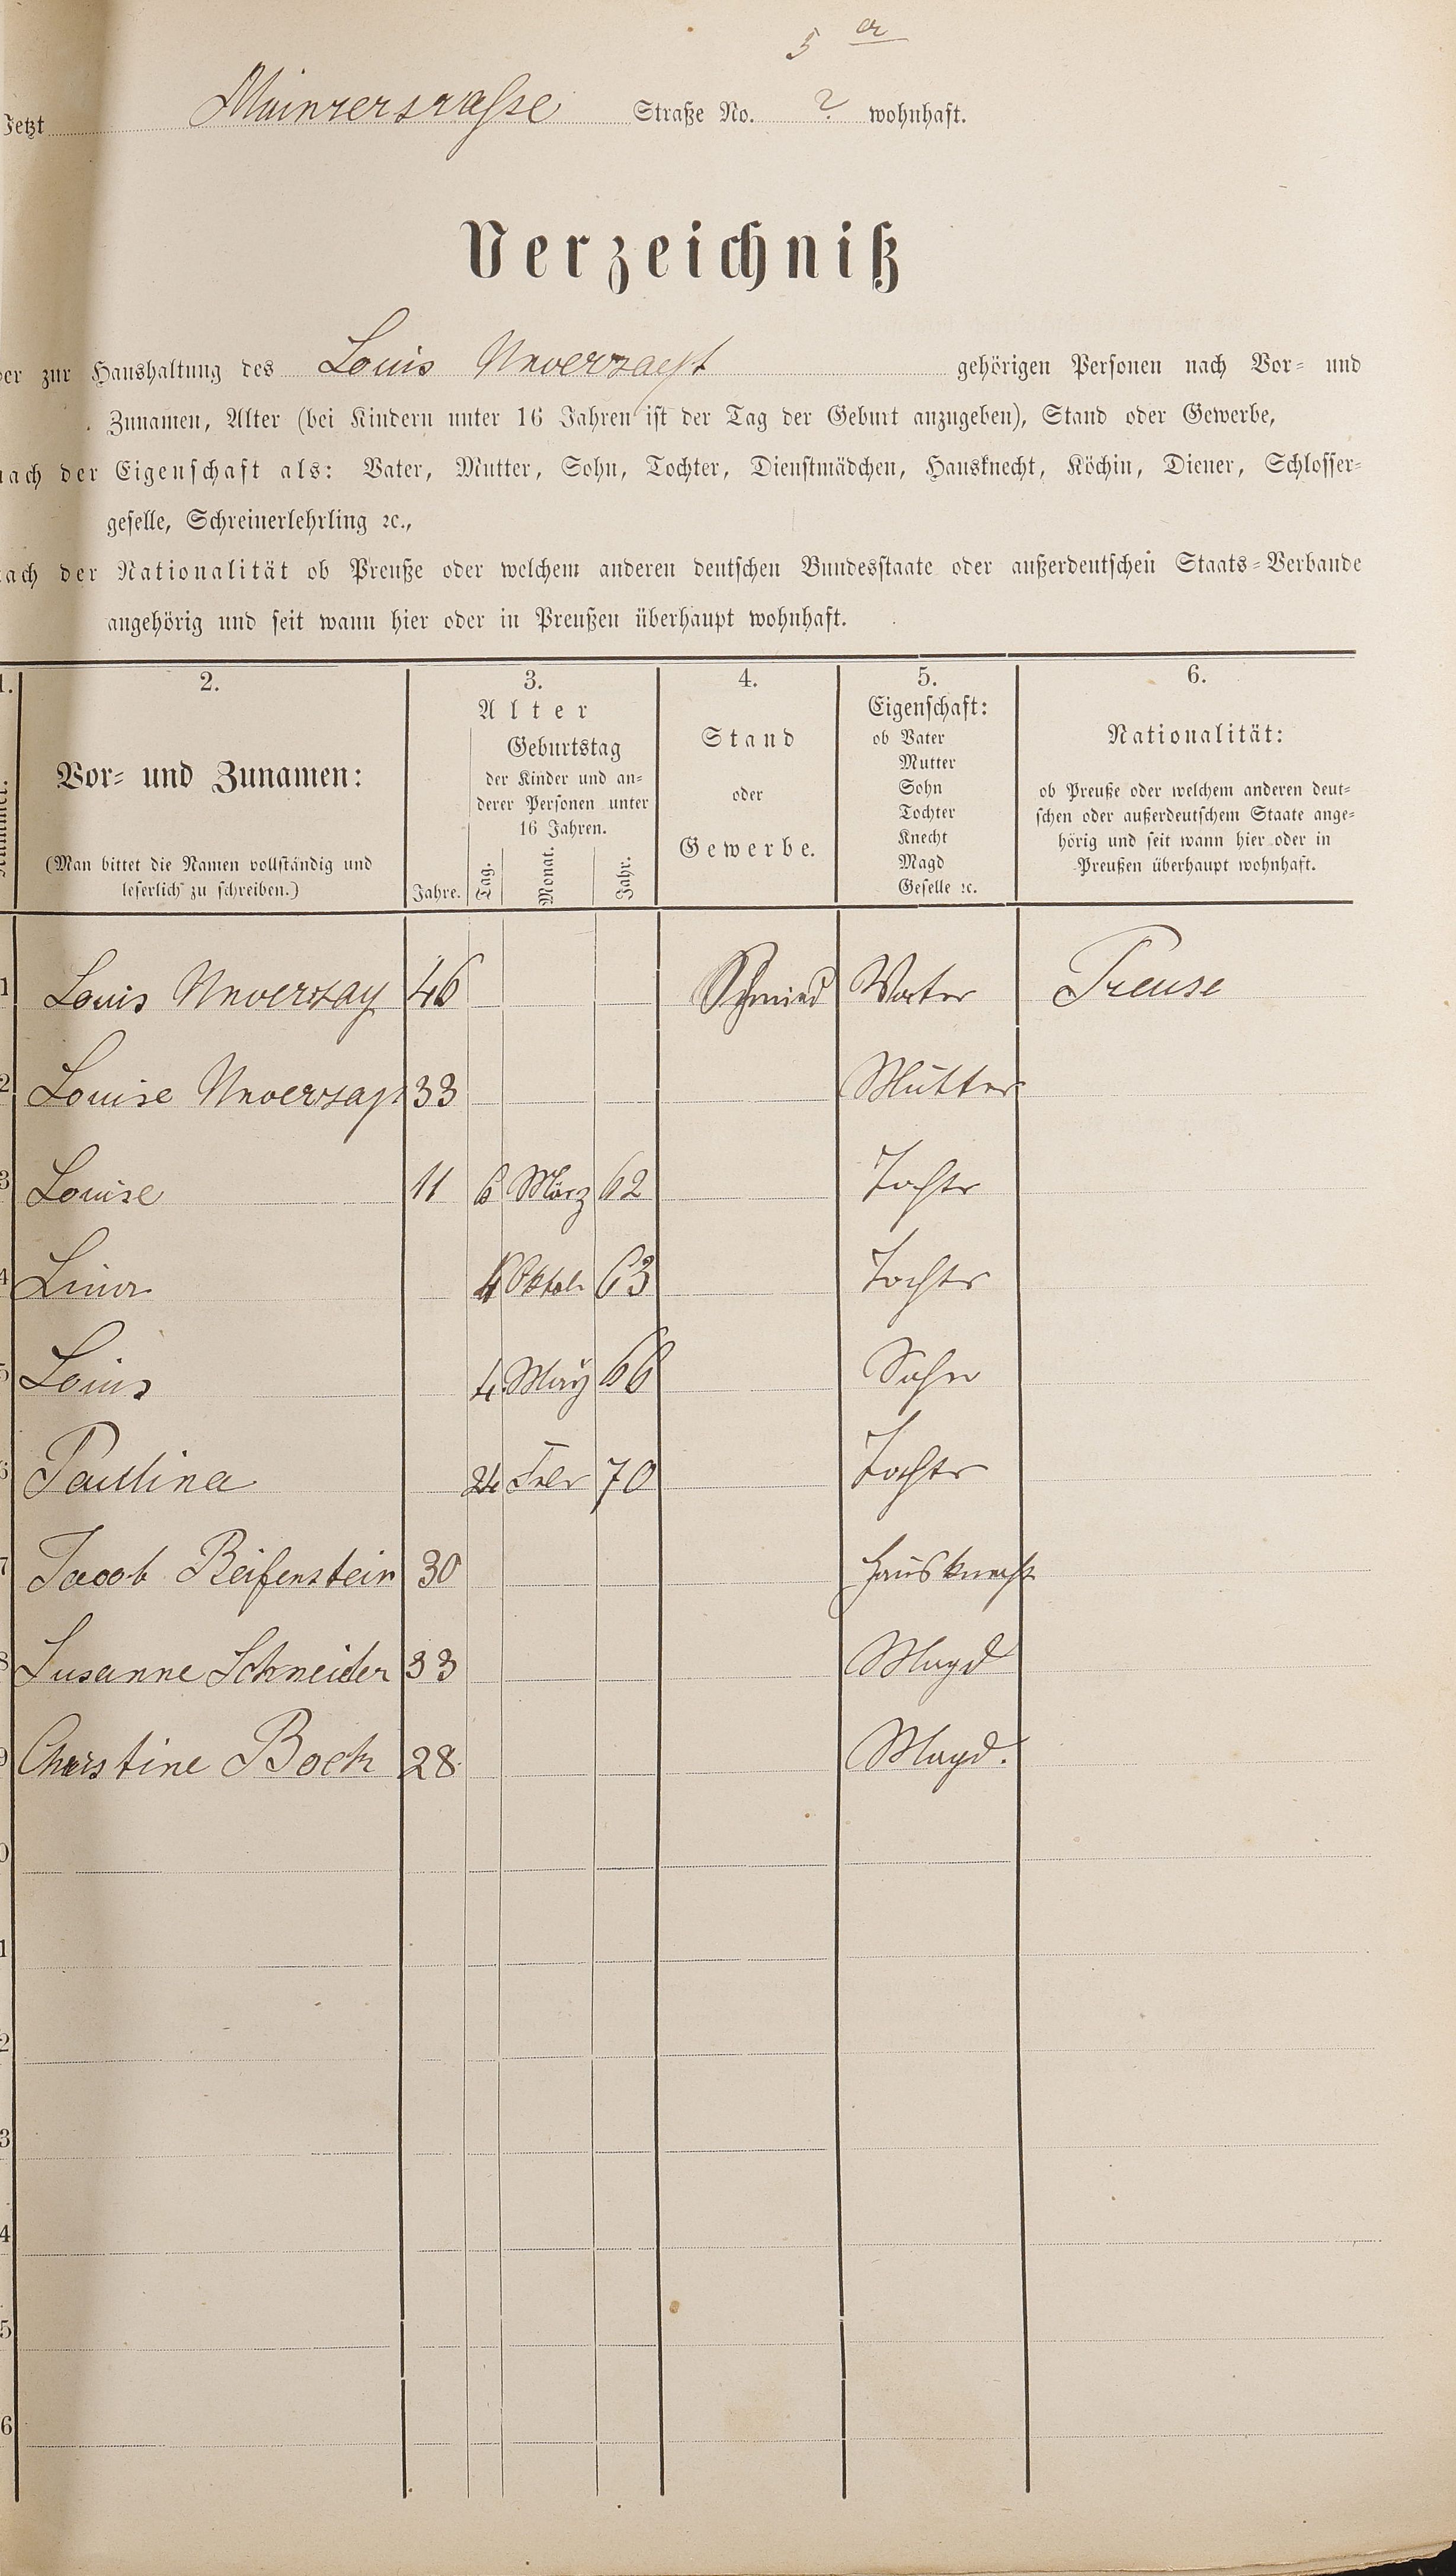 5 a
Jetzt Mainzerstraße Straße No. 2 wohnhaft.
Verzeichniß
der zur Haushaltung des Louis Unverzagt gehörigen Personen nach Vor- und
Zunamen, Alter (bei Kindern unter 16 Jahren ist der Tag der Geburt anzugeben), Stand oder Gewerbe,
nach der Eigenschaft als: Vater, Mutter, Sohn, Tochter, Dienstmädchen, Hausknecht, Köchin, Diener, Schlosser-
geselle, Schreinerlehrling ꝛc.,
nach der Nationalität ob Preuße oder welchem anderen deutschen Bundesstaate oder außerdeutschen Staats-Verbande
angehörig und seit wann hier oder in Preußen überhaupt wohnhaft.
1. 2. 3. 4. 5. 6.
Nummer.
Vor- und Zunamen:
(Man bittet die Namen vollständig und
leserlich zu schreiben.)
Alter
Jahre.
Geburtstag
der Kinder und an-
derer Personen unter
16 Jahren.
Tag. Monat. Jahr.
Stand
oder
Gewerbe.
Eigenschaft:
ob Vater
Mutter
Sohn
Tochter
Knecht
Magd
Geselle ꝛc.
Nationalität:
ob Preuße oder welchem anderen deut-
schen oder außerdeutschem Staate ange-
hörig und seit wann hier oder in
Preußen überhaupt wohnhaft.
1 Louis Unverzag 46 Schmied Vater Preuse
2 Louise Unverzagt 33 Mutter
3 Louise 11 6 März 62 Tochter
4 Lina 4 Oktob 63 Tochter
5 Louis 4 May 66 Sohn
6 Paulina 24 Febr 70 Tochter
7 Jacob Reifenstein 30 Hausknecht
8 Susanne Schneider 33 Magd
9 Christine Bock 28 Magd.
0
1
2
3
4
5
6